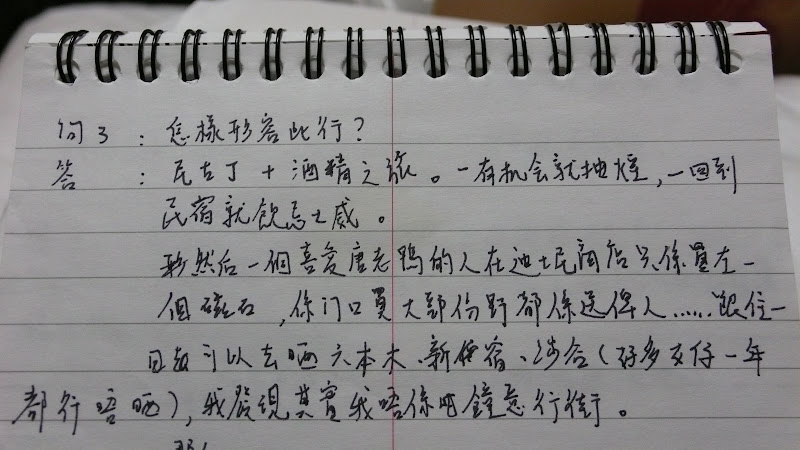 問3：怎樣形容此行？
答：尼古丁+酒精之旅。一有机会就抽煙，一回到
民宿就飲忌士威。
然后一個喜愛唐老鴨的人在迪士尼商店只係買左一
個磁石，你门口買大部份野都係送俾人……跟住一
日可以去晒六本木、新宿、涉谷（好多女仔一年
都行唔晒），我發現其實我唔係咁鐘意行街。